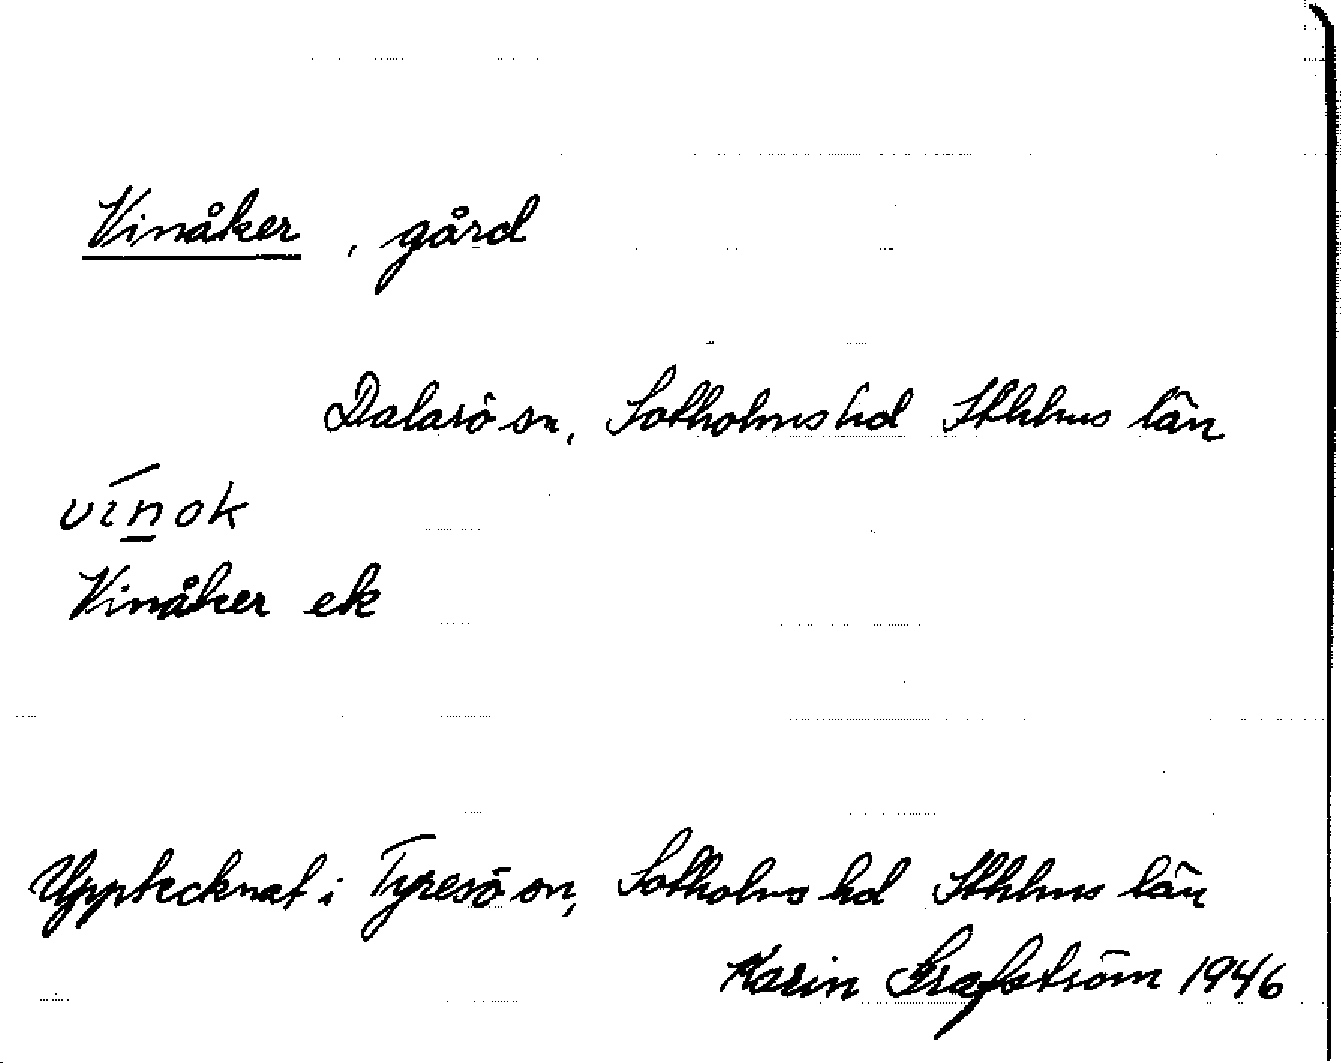 Vinåker, gård
Dalarö sn, Sotholms hd Sthlms län
vínok
Vinåker ek
Upptecknat i Tyresö sn, Sotholms hd Sthlms län
Karin Grafström 1946